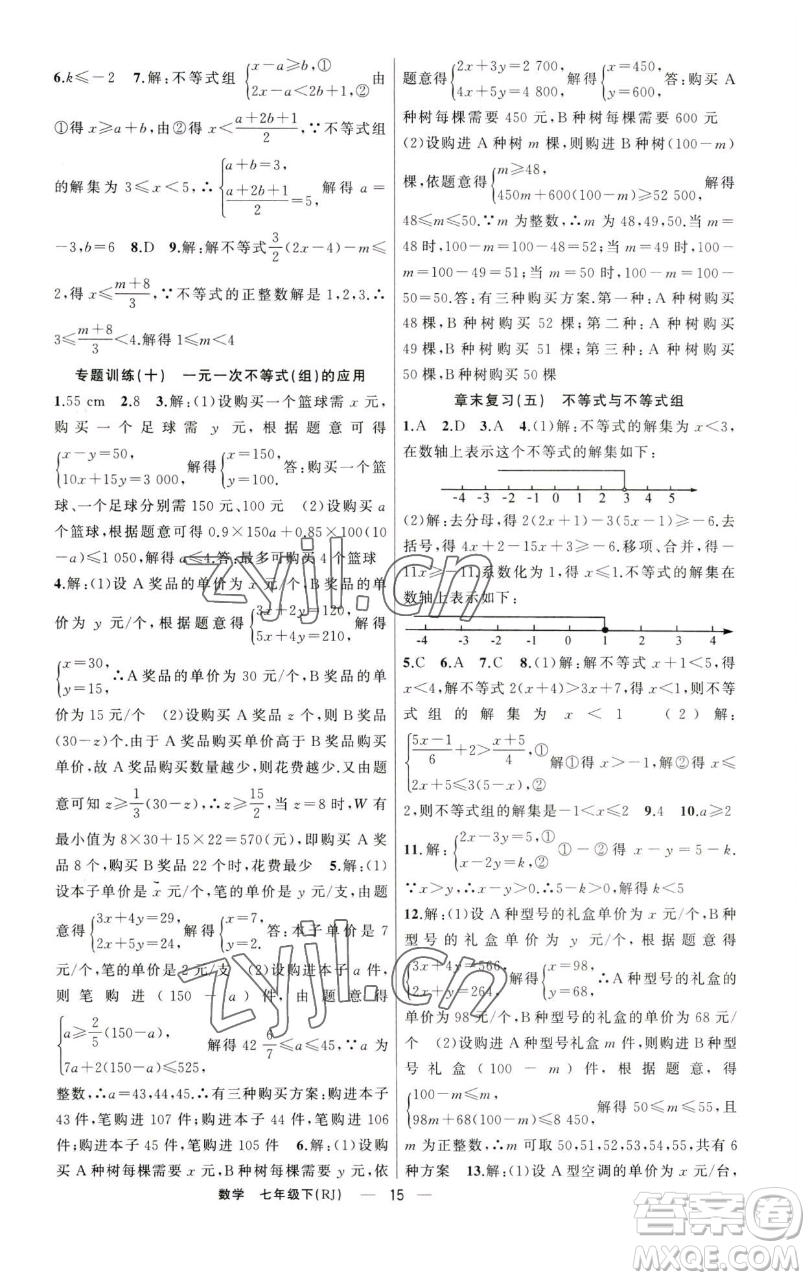 6.k≤-2 7.解:不等式组{x-a≥b,① 2x-a<2b+1,② 由
①得 x≥a+b,由②得 x<(a+2b+1)/2,∵不等式组
的解集为 3≤x<5,∴{a+b=3, (a+2b+1)/2=5, 解得 a=
-3,b=6 8.D 9.解:解不等式 3/2(2x-4)-m≤
2,得 x≤(m+8)/3,∵不等式的正整数解是 1,2,3.∴
3≤(m+8)/3<4.解得 1≤m<4
专题训练(十) 一元一次不等式(组)的应用
1.55 cm 2.8 3.解:(1)设购买一个篮球需 x 元,
购买一个足球需 y 元,根据题意可得
{x-y=50, 10x+15y=3 000, 解得{x=150, y=100. 答:购买一个篮
球、一个足球分别需 150 元、100 元 (2)设购买 a
个篮球,根据题意可得 0.9×150a+0.85×100(10
-a)≤1 050,解得 a≤4.答:最多可购买 4 个篮球
4.解:(1)设 A 奖品的单价为 x 元/个,B 奖品的单
价为 y 元/个,根据题意得{3x+2y=120, 5x+4y=210, 解得
{x=30, y=15, ∴A 奖品的单价为 30 元/个,B 奖品的单
价为 15 元/个 (2)设购买 A 奖品 z 个,购买 B 奖品
(30-z)个.由于 A 奖品购买单价高于 B 奖品购买
单价,故 A 奖品购买数量越少,则花费越少,根据题
意可知 z≥1/3(30-z),∴z≥15/2,当 z=8 时,W 有
最小值为 8×30+15×22=570(元),即购买 A 奖
品 8 个,购买 B 奖品 22 个时,花费最少 5.解:(1)
设本子单价是 x 元/个,笔的单价是 y 元/支,由题意
得{3x+4y=29, 2x+5y=24, 解得{x=7, y=2. 答:本子单价是 7
元/件,笔的单价是 2 元/支 (2)设购进本子 a 件,
则笔购进(150-a)件,由题意得
{a≥2/5(150-a), 7a+2(150-a)≤525, 解得 42 6/7≤a≤45,∵a 为
整数,∴a=43,44,45.∴有三种购买方案:购进本子
43 件,笔购进 107 件;购进本子 44 件,笔购进 106
件;购进本子 45 件,笔购进 105 件 6.解:(1)设购
买 A 种树每棵需要 x 元,B 种树每棵需要 y 元,依
题意得{2x+3y=2 700, 4x+5y=4 800, 解得{x=450, y=600, 答:购买 A
种树每棵需要 450 元,B 种树每棵需要 600 元
(2)设购进 A 种树 m 棵,则购进 B 种树(100-m)
棵,依题意得{m≥48, 450m+600(100-m)≥52 500, 解得
48≤m≤50.∵m 为整数,∴m 为 48,49,50.当 m=
48 时,100-m=100-48=52;当 m=49 时,100-
m=100-49=51;当 m=50 时,100-m=100-
50=50.答:有三种购买方案.第一种:A 种树购买
48 棵,B 种树购买 52 棵;第二种:A 种树购买
49 棵,B 种树购买 51 棵;第三种:A 种树购买
50 棵,B 种树购买 50 棵
章末复习(五) 不等式与不等式组
1.A 2.D 3.A 4.(1)解:不等式的解集为 x<3,
在数轴上表示这个不等式的解集如下:
-4 -3 -2 -1 0 1 2 3 4 5
(2)解:去分母,得 2(2x+1)-3(5x-1)≥-6.去
括号,得 4x+2-15x+3≥-6.移项、合并,得-
11x≥-11.系数化为 1,得 x≤1.不等式的解集在
数轴上表示如下:
-4 -3 -2 -1 0 1 2 3 4
5.C 6.A 7.C 8.(1)解:解不等式 x+1<5,得
x<4,解不等式 2(x+4)>3x+7,得 x<1,则不等
式组的解集为 x<1 (2)解:
{(5x-1)/6+2>(x+5)/4,① 2x+5≤3(5-x),② 解①得 x>-1,解②得 x≤
2,则不等式组的解集是-1<x≤2 9.4 10.a≥2
11.解:{2x-3y=5,① x-2y=k,② ①-②得 x-y=5-k.
∵x>y,∴x-y>0.∴5-k>0.解得 k<5
12.解:(1)设 A 种型号的礼盒单价为 x 元/个,B 种
型号的礼盒单价为 y 元/个,根据题意得
{3x+4y=566, 2x+y=264, {x=98, y=68, ∴A 种型号的礼盒的
单价为 98 元/个,B 种型号的礼盒单价为 68 元/
个 (2)设购进 A 种型号礼盒 m 个,则购进 B 种型
号礼盒(100-m)件,根据题意,得
{100-m≤m, 98m+68(100-m)≤8 450, 解得 50≤m≤55,且
m 为正整数,∴m 可取 50,51,52,53,54,55,共有 6
种方案 13.解:(1)设 A 型空调的单价为 x 元/台,
数学 七年级下(RJ) — 15 —
zyjl.cn
zyjl.cn
答案圈
MXQE.COM